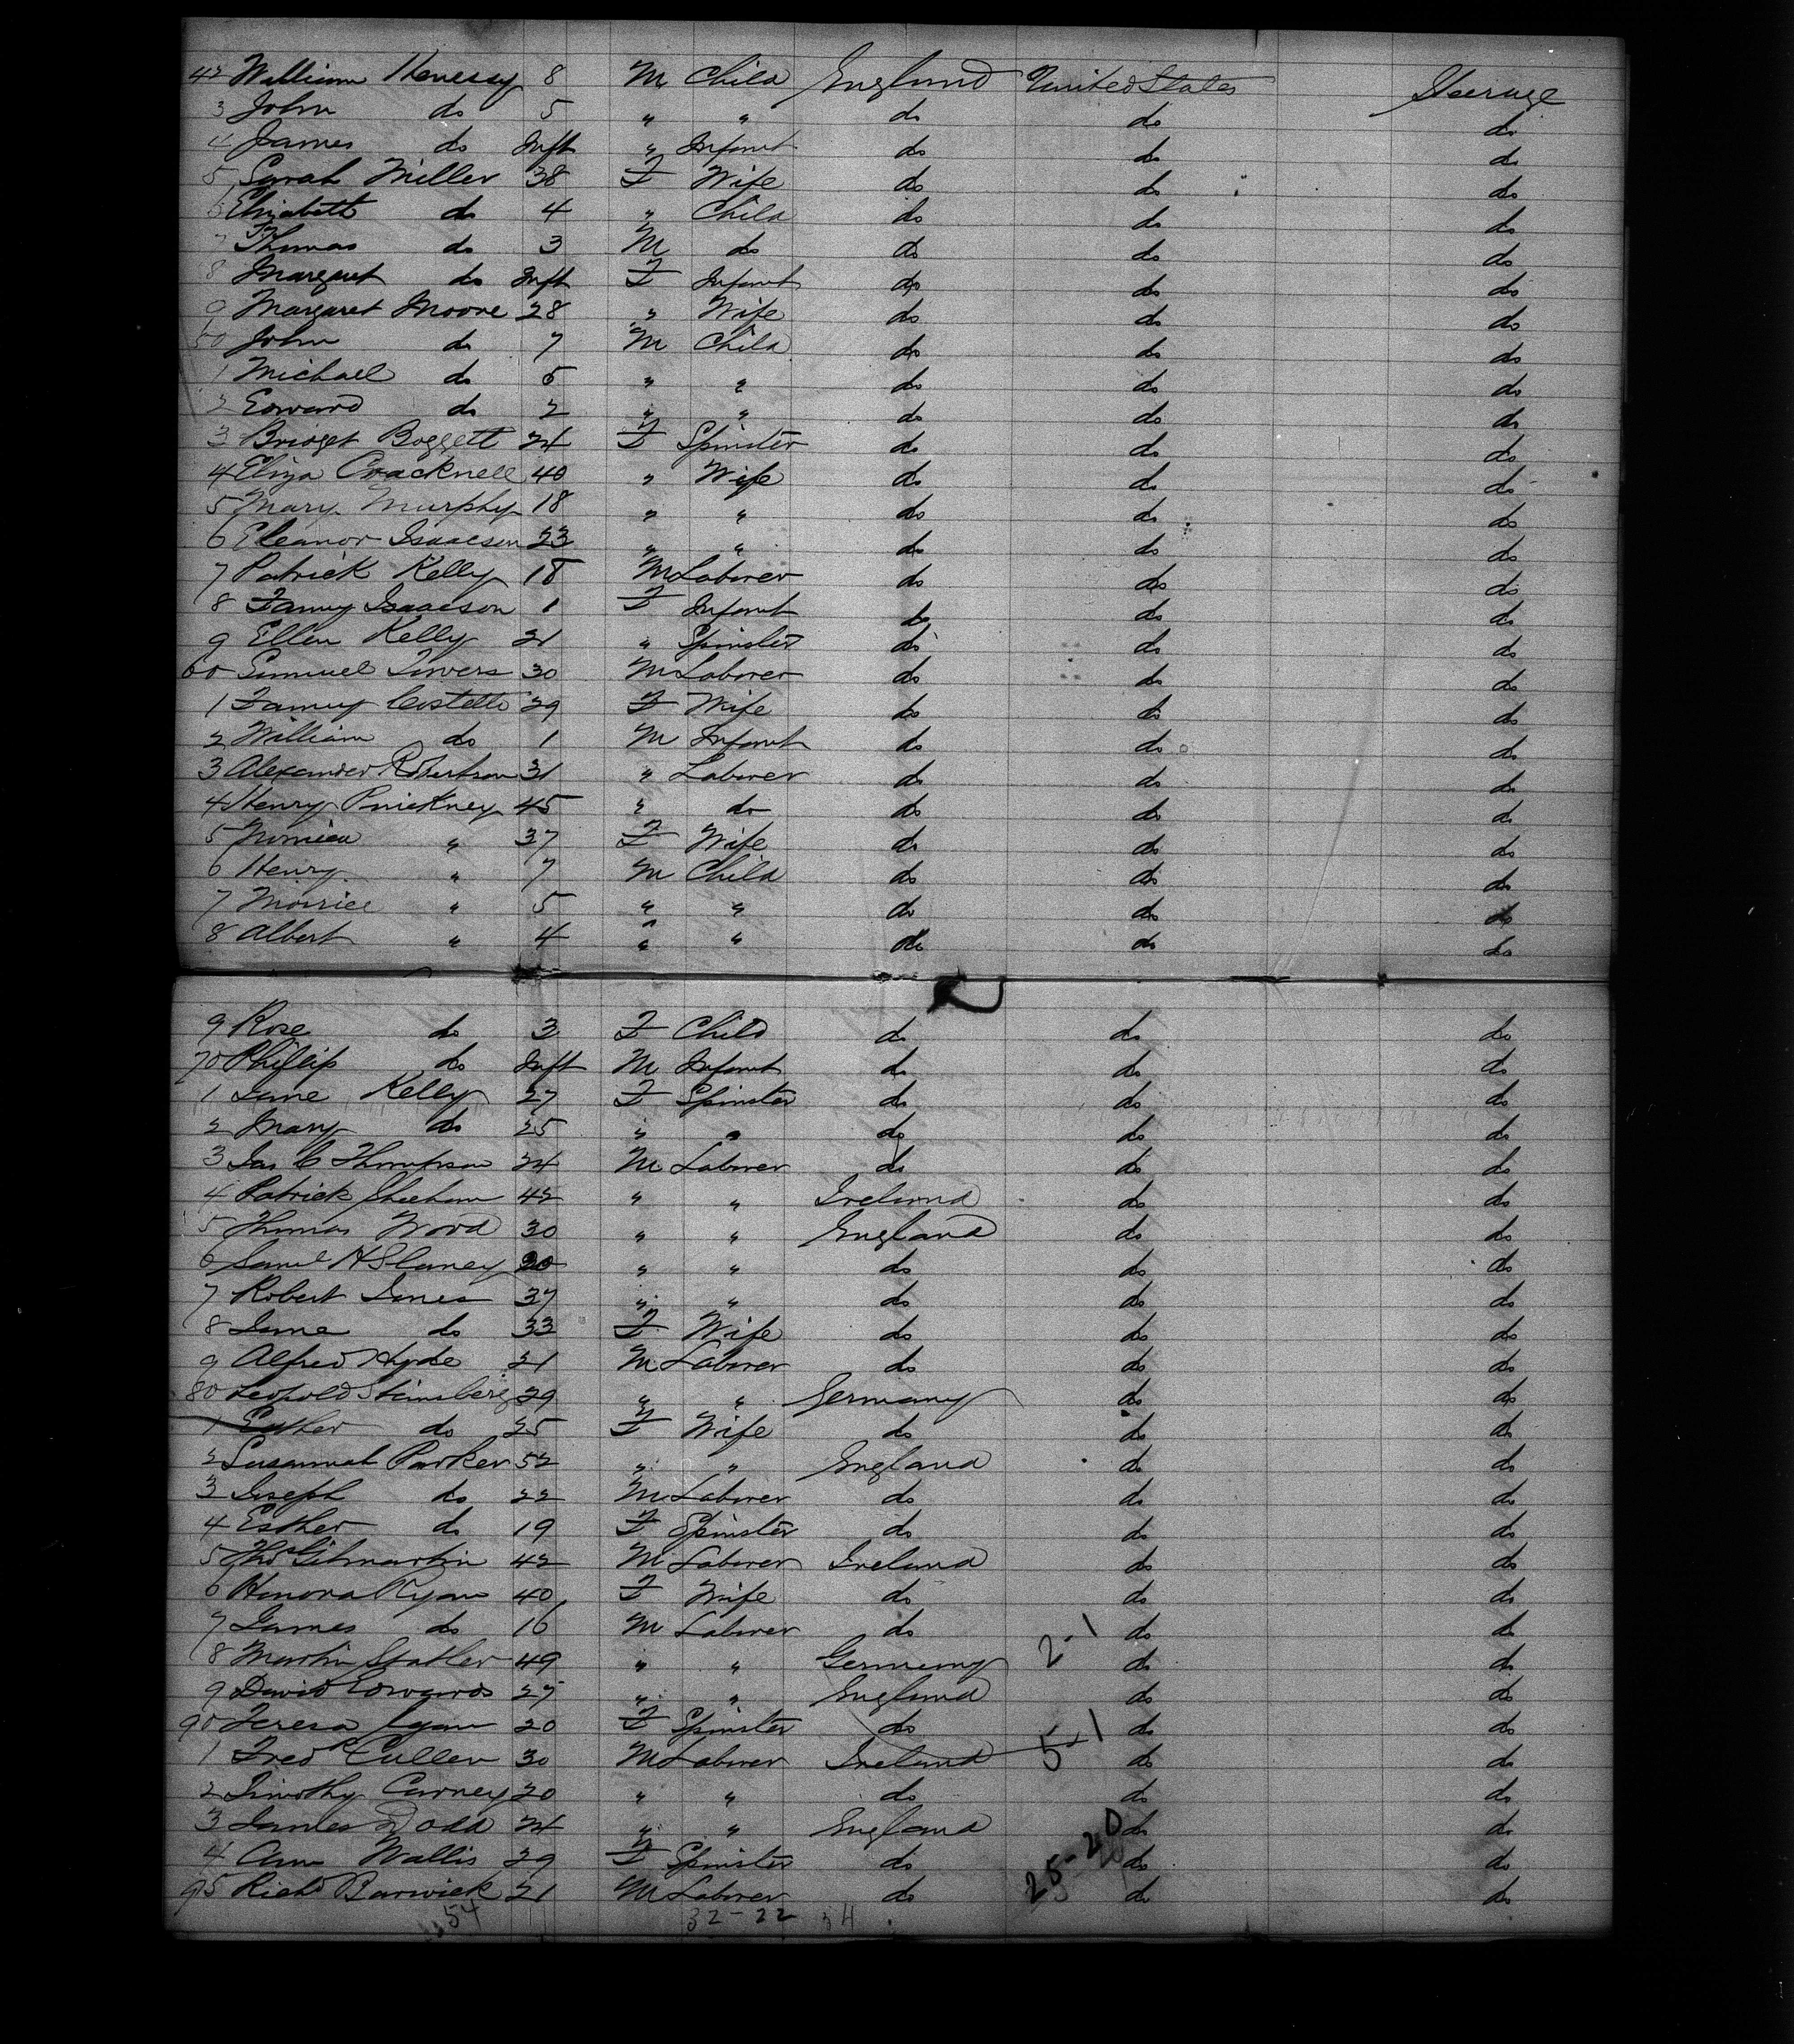 42 William Henessy 8 M Child England United States Steerage
3 John do 5 " " do do do
4 James do Inft " Infant do do do
5 Sarah Miller 38 F Wife do do do
6 Elizabeth do 4 " Child do do do
7 Thomas do 3 M do do do do
8 Margaret do Inft F Infant do do do
9 Margaret Moore 28 " Wife do do do
50 John do 7 M Child do do do
1 Michael do 5 " " do do do
2 Edward do 2 " " do do do
3 Bridget Boggett 24 F Spinster do do do
4 Eliza Cracknell 40 " Wife do do do
5 Mary Murphy 18 " " do do do
6 Eleanor Isaacson 23 " " do do do
7 Patrick Kelly 18 M Laborer do do do
8 Fanny Isaacson 1 F Infant do do do
9 Ellen Kelly 21 " Spinster do do do
60 Samuel Towers 30 M Laborer do do do
1 Fanny Costello 29 F Wife do do do
2 William do 1 M Infant do do do
3 Alexander Robertson 31 " Laborer do do do
4 Henry Pinickney 45 " do do do do
5 " 37 F Wife do do do
6 Henry " 7 M Child do do do
7 Morrice " 5 " " do do do
8 Albert " 4 " " do do do
9 Rose do 3 F Child do do do
70 Phillip do Inft M Infant do do do
1 Jane Kelly 27 F Spinster do do do
2 Mary do 25 " " do do do
3 Jas C Thompson 24 M Laborer do do do
4 Patrick Sheehan 42 " " Ireland do do
5 Thomas Wood 30 " " England do do
6 Saml H Slaney 20 " " do do do
7 Robert Jones 37 " " do do do
8 Jane do 33 F Wife do do do
9 Alfred Hyde 21 M Laborer do do do
80 Leopold Steinsberg 29 " " Germany do do
1 Esther do 25 F Wife do do do
2 Susannah Parker 52 " " England do do
3 Joseph do 22 M Laborer do do do
4 Esther do 19 F Spinster do do do
5 Thos Gilmartin 42 M Laborer Ireland do do
6 Honora Ryan 40 F Wife do do do
7 James do 16 M Laborer do 2-1 do do
8 Martin Statler 49 " " Germany do do
9 David Edwards 27 " " England do do
90 Teresa 20 F Spinster do do do
1 Fredk Cullen 30 M Laborer Ireland 5-1 do do
2 Timothy Carney 20 " " do do do
3 James Dodd 24 " " England do do
4 Ann Wallis 29 F Spinster do do do
95 Richd Barwick 21 M Laborer do 25-20 do do
54 32-22 54